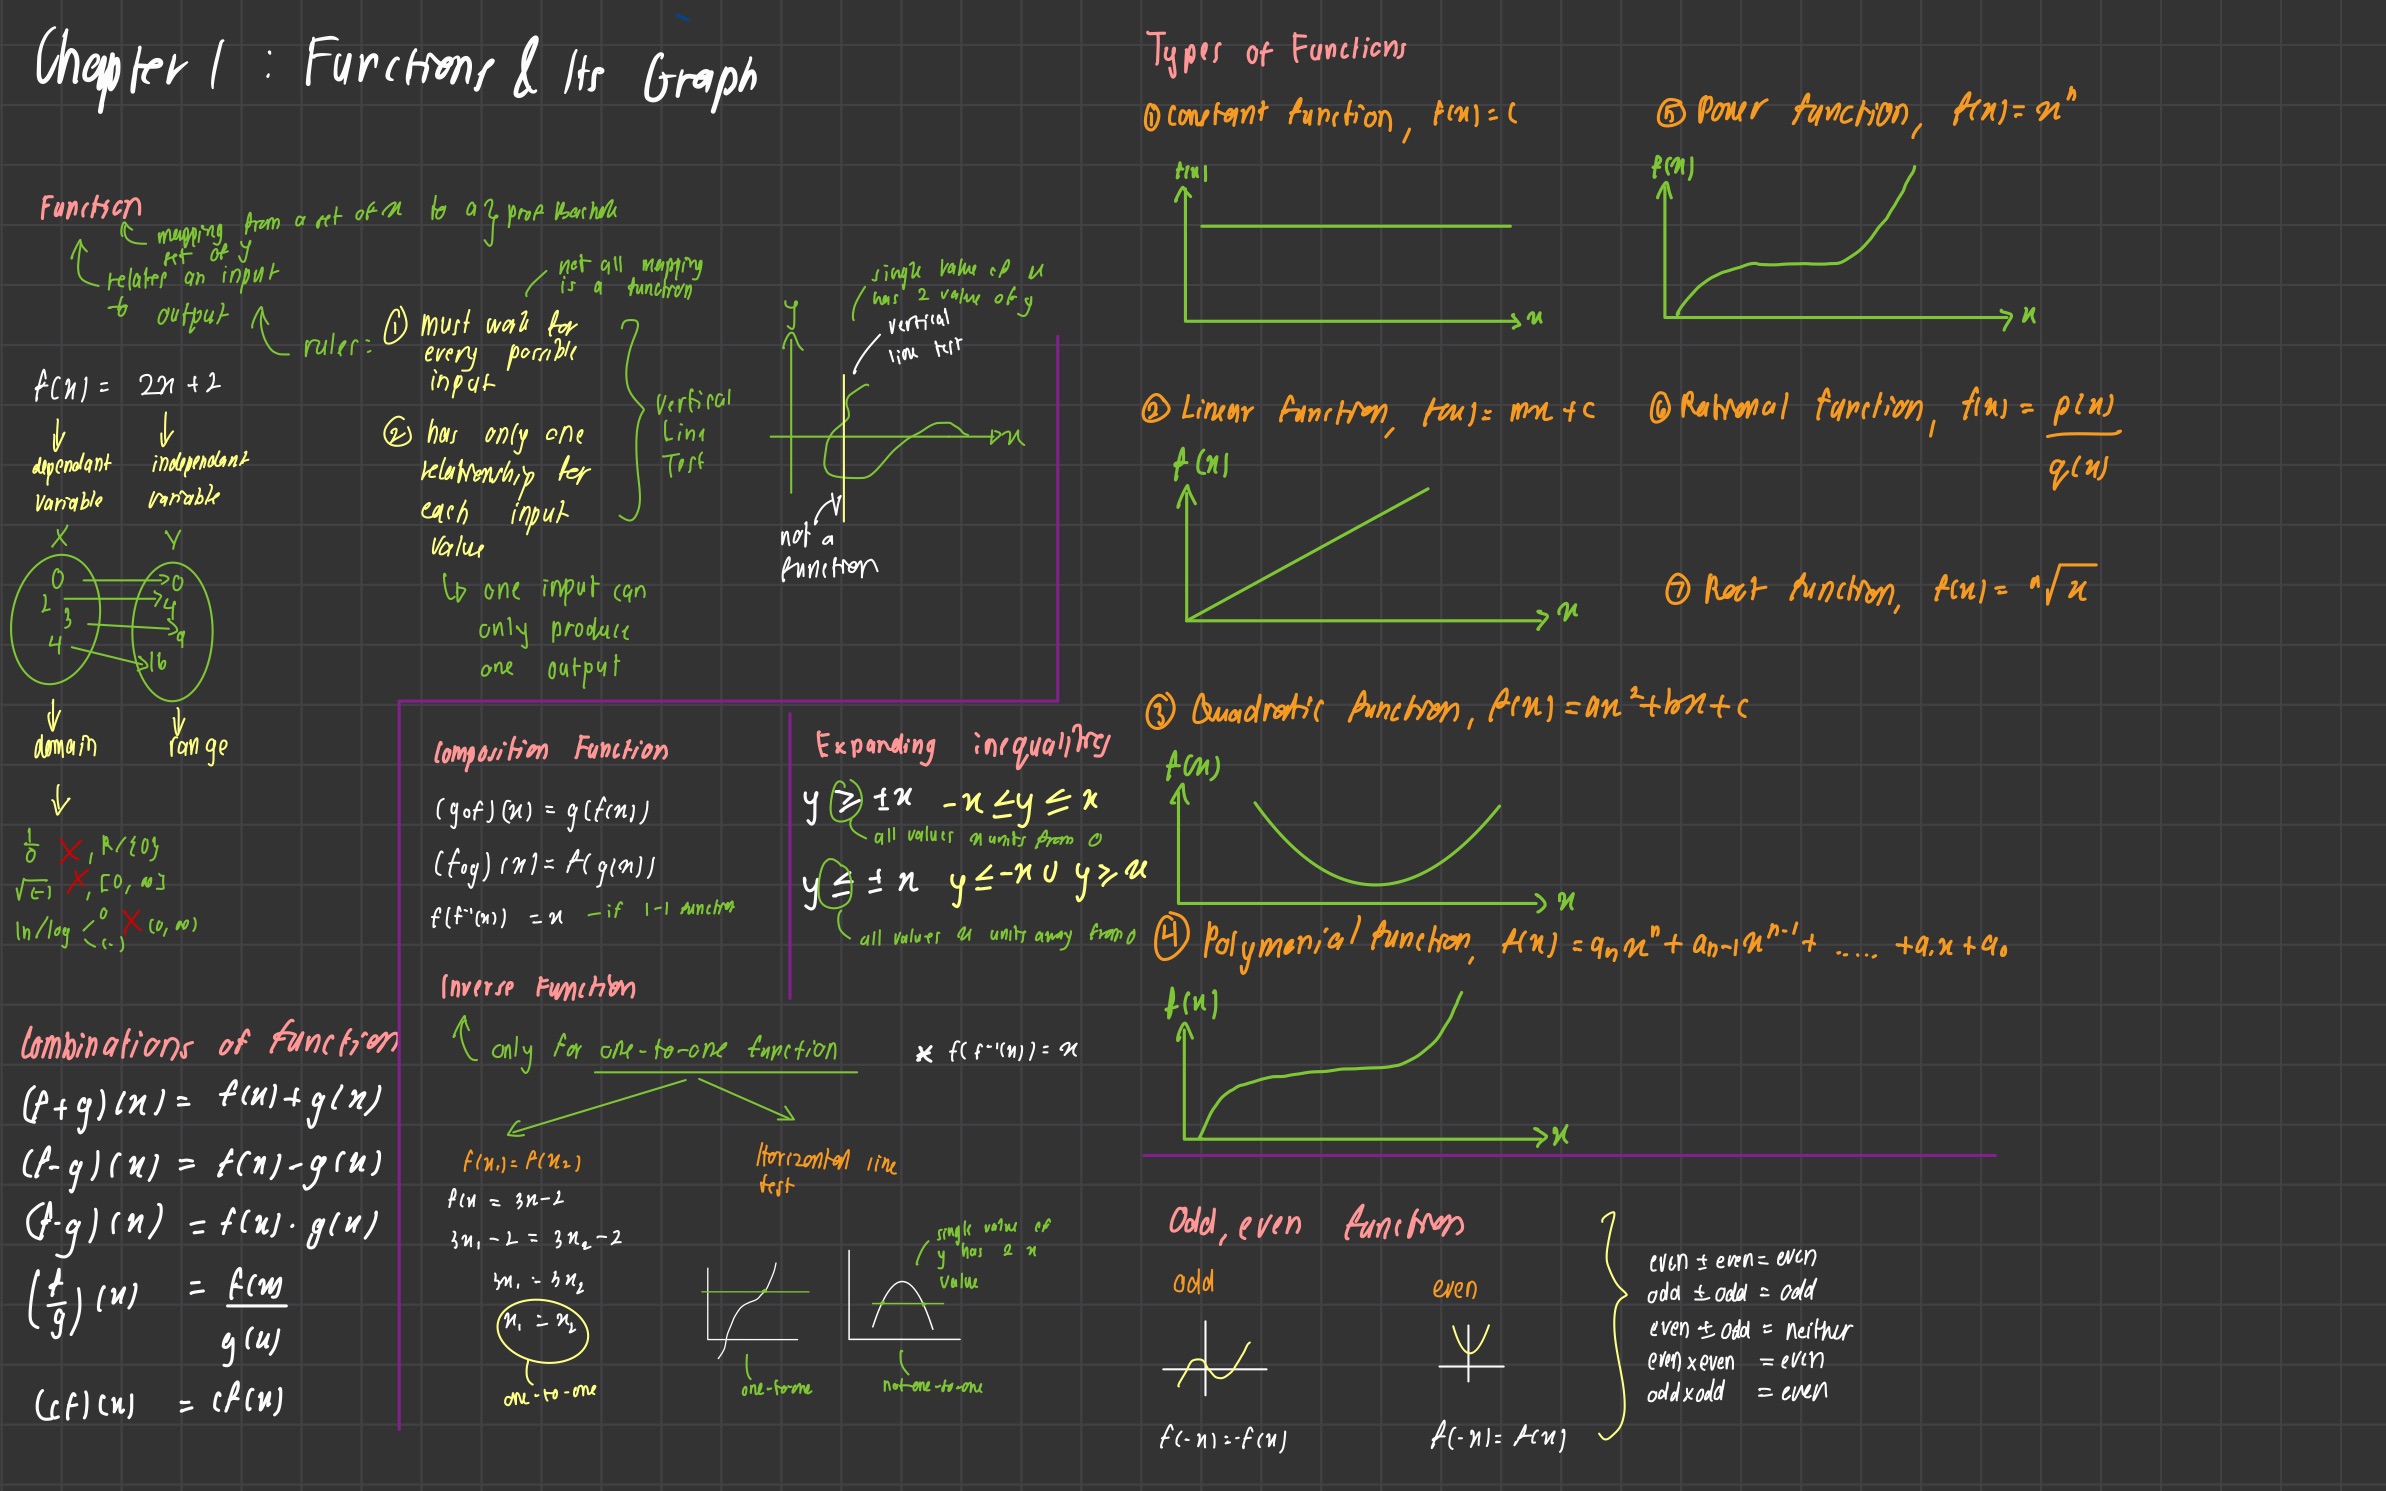 Chapter 1 : Functions & Its Graph
Function
mapping from a set of x to a
set of y
} prof
relates an input
to output
rules:
not all mapping
is a function
① must work for
every possible
input
② has only one
relationship for
each input
value
↳ one input can
only produce
one output
Vertical
Line
Test
single value of x
has 2 value of y
vertical
line test
y
x
not a
function
f(x) = 2x + 2
dependant
variable
independant
variable
X
Y
0
2
3
4
0
4
9
16
domain
range
1/0 X, R/{0}
√(-) X, [0, ∞]
ln/log < 0 (-) X (0, ∞)
Combinations of function
(f+g)(x) = f(x)+g(x)
(f-g)(x) = f(x)-g(x)
(f·g)(x) = f(x)·g(x)
(f/g)(x) = f(x)/g(x)
(cf)(x) = cf(x)
Composition Function
(gof)(x) = g(f(x))
(fog)(x) = f(g(x))
f(f⁻¹(x)) = x - if 1-1 function
Expanding inequalities
y ≥ ±x -x ≤ y ≤ x
all values x units from 0
y ≤ ±x y ≤ -x ∪ y ≥ x
all values x units away from 0
Inverse Function
only for one-to-one function
* f(f⁻¹(x)) = x
f(x₁) = f(x₂)
f(x = 3x-2
3x₁ - 2 = 3x₂ - 2
3x₁ = 3x₂
x₁ = x₂
one-to-one
Horizontal line
test
one-to-one
single value of
y has 2 x
value
not one-to-one
Types of Functions
① Constant function, f(x) = c
f(x)
x
② Linear function, f(x) = mx + c
f(x)
x
③ Quadratic function, f(x) = ax² + bx + c
f(x)
x
④ Polymonial function, f(x) = aₙxⁿ + aₙ₋₁xⁿ⁻¹ + ..... + a₁x + a₀
f(x)
x
⑤ Power function, f(x) = xⁿ
f(x)
x
⑥ Rational function, f(x) = p(x)/q(x)
⑦ Root function, f(x) = ⁿ√x
Odd, even function
odd
even
f(-x) = -f(x)
f(-x) = f(x)
even ± even = even
odd ± odd = odd
even ± odd = neither
even x even = even
odd x odd = even